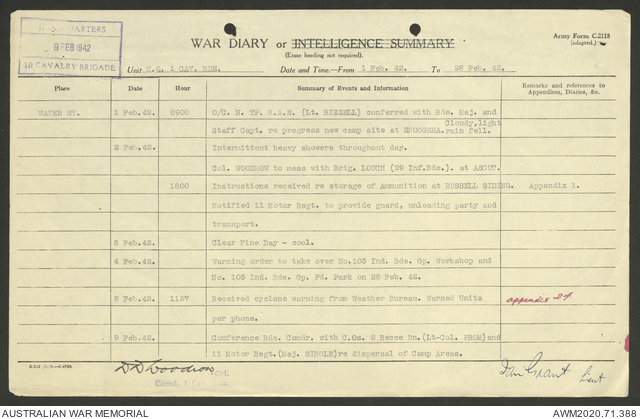 HEADQUARTERS
9 FEB 1942
1ST CAVALRY BRIGADE
WAR DIARY or INTELLIGENCE SUMMARY
(Erase heading not required).
Army Form C.2118
(adapted.)
Unit H.Q. 1 CAV. BDE. Date and Time—From 1 Feb. 42. To 28 Feb. 42.
Place Date Hour Summary of Events and Information Remarks and references to Appendices, Diaries, &c.
WATER ST. 1 Feb.42. 0900 O/C. N. TP. R.A.E. (Lt. BIZZELL) conferred with Bde. Maj. and
Staff Capt. re progress new camp site at ENOGGERA. Cloudy, light rain fell.
2 Feb.42. Intermittent heavy showers throughout day.
Col. WOODROW to mess with Brig. LOUCH (29 Inf.Bde.). at ASCOT.
1800 Instructions received re storage of Ammunition at RUSSELL SIDING. Appendix 1.
Notified 11 Motor Regt. to provide guard, unloading party and
transport.
3 Feb.42. Clear Fine Day - cool.
4 Feb.42. Warning order to take over No.103 Ind. Bde. Gp. Workshop and
No. 103 Ind. Bde. Gp. Fd. Park on 28 Feb. 42.
8 Feb.42 1157 Received cyclone warning from Weather Bureau. Warned Units appendix 24
per phone.
9 Feb.42. Conference Bde. Comdr. with C.Os. 2 Recce Bn. (Lt-Col. FROM) and
11 Motor Regt. (Maj. SINGLE) re dispersal of Camp Areas.
Col.
Ian Grant Lieut
AUSTRALIAN WAR MEMORIAL
AWM2020.71.388